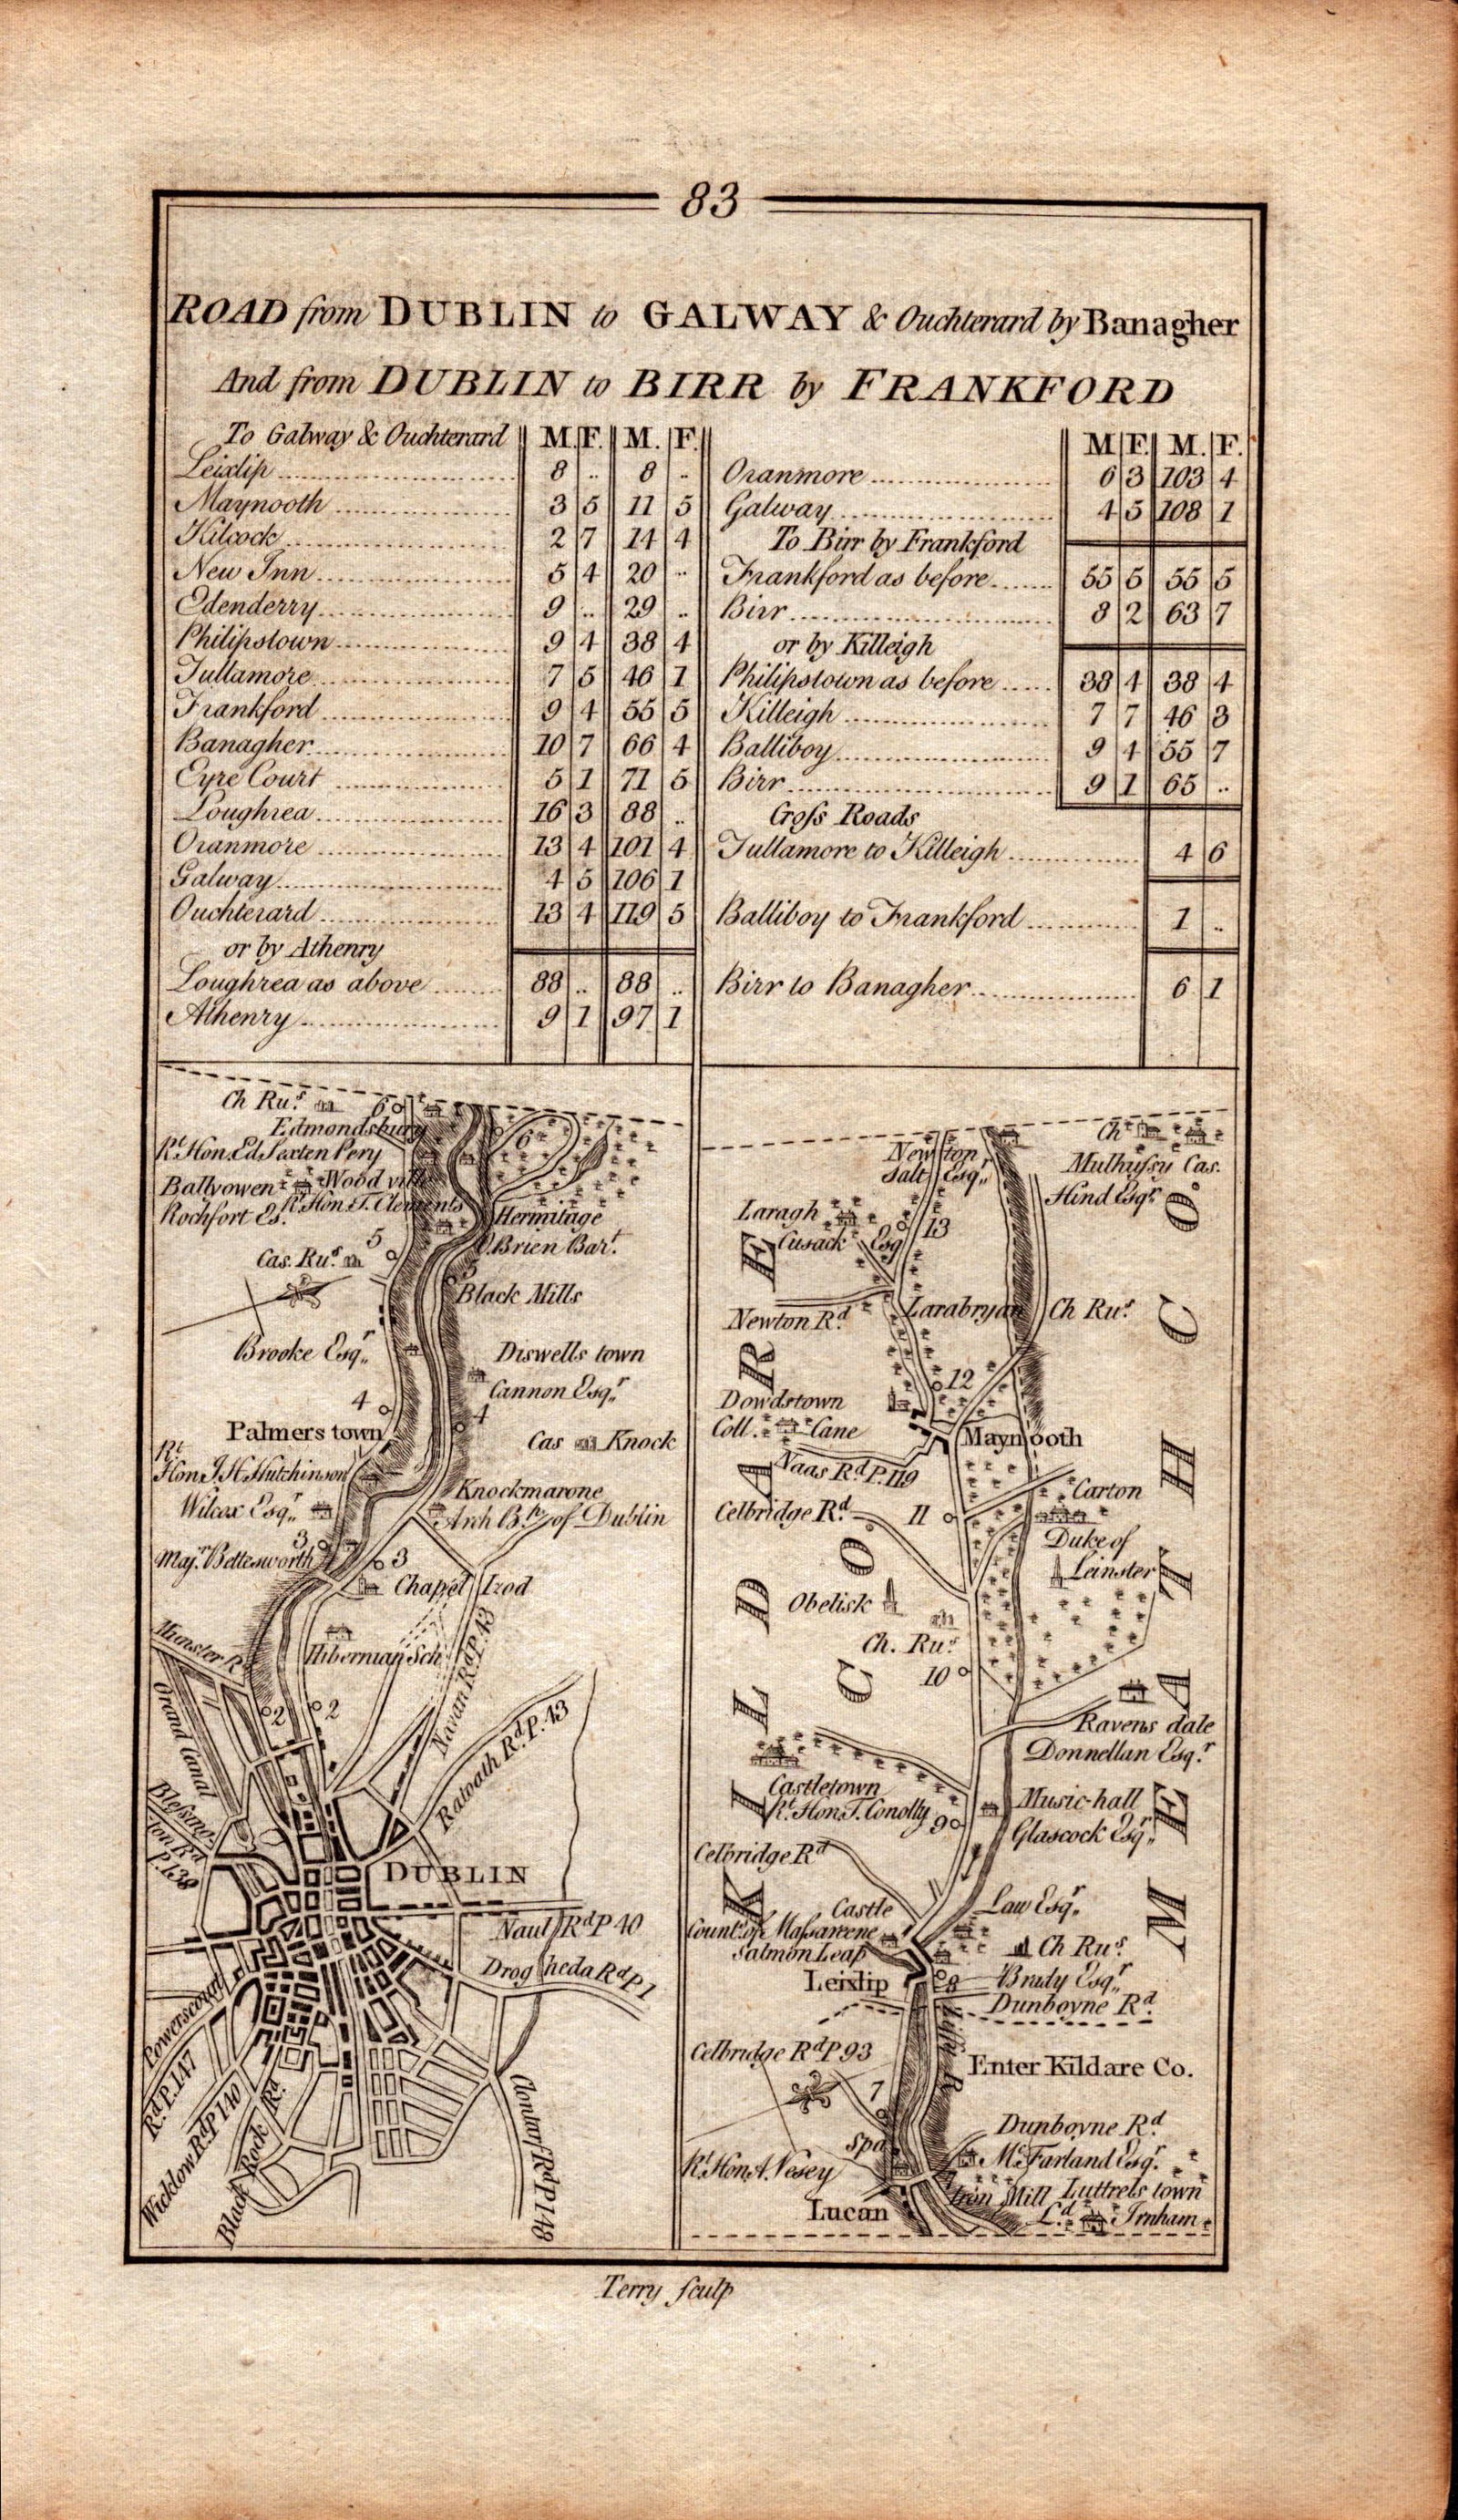 83
ROAD from DUBLIN to GALWAY & Ouchterard by Banagher
And from DUBLIN to BIRR by FRANKFORD
To Galway & Ouchterard M. F. M. F.
Leixlip 8 .. 8 ..
Maynooth 3 5 11 5
Kilcock 2 7 14 4
New Inn 5 4 20 ..
Edenderry 9 .. 29 ..
Philipstown 9 4 38 4
Tullamore 7 5 46 1
Frankford 9 4 55 5
Banagher 10 7 66 4
Eyre Court 5 1 71 5
Loughrea 16 3 88 ..
Oranmore 13 4 101 4
Galway 4 5 106 1
Ouchterard 13 4 119 5
or by Athenry
Loughrea as above 88 .. 88 ..
Athenry 9 1 97 1
M F. M. F.
Oranmore 6 3 103 4
Galway 4 5 108 1
To Birr by Frankford
Frankford as before 55 5 55 5
Birr 8 2 63 7
or by Killeigh
Philipstown as before 38 4 38 4
Killeigh 7 7 46 3
Balliboy 9 4 55 7
Birr 9 1 65 ..
Croſs Roads
Tullamore to Killeigh 4 6
Balliboy to Frankford 1 ..
Birr to Banagher 6 1
Ch Ru.s
6
Edmondsbury
Rt. Hon. Ed Sexten Pery
6
Ballyowen
Wood ville
Rt Hon T. Clements
Rochfort Es.
Hermitage
O.Brien Bart.
5
Cas. Ru.s
5
Black Mills
Brooke Esq.r
Diswells town
Cannon Esq.r
4
4
Palmers town
Cas Knock
Rt.
Hon J H Hutchinson
Knockmarone
Wilcox Esq.r
Arch B.p of Dublin
3
Maj.r Bettesworth
3
Chapel Izod
Hibernian Sch
Munster R
Navan Rd. P. 43
2
2
Grand Canal
Ratoath Rd. P. 43
Bleſsing-
ton Rd
P. 138
DUBLIN
Naul Rd P 40
Drogheda Rd P 1
Powerscourt
Rd. P. 147
Wicklow Rd. P 140
Black Rock Rd.
Clontarf Rd P 148
Newton
Salt Esq.r
Ch
Mulhuſsy Cas.
Hind Esq.r
Laragh
Cusack Esq
13
Newton Rd.
Larabryan
Ch Ru.s
12
Dowdstown
Coll. Cane
Maynooth
Naas Rd. P. 119
Carton
Celbridge Rd.
11
Duke of
Leinster
Obelisk
Ch. Ru.s
10
Ravens dale
Donnellan Esq.r
Castletown
Rt. Hon. T. Conolly
9
Music-hall
Glascock Esq.r
Celbridge Rd
Castle
Count.s of Maſsareene
Salmon Leap
Law Esq.r
Ch Ru.s
Leixlip
8
Brady Esq.r
Dunboyne Rd.
Liffy R
Celbridge Rd P 93
Enter Kildare Co.
7
Dunboyne Rd.
Spa
Mc. Farland Esq.r
Rt. Hon A. Vesey
Iron Mill
Luttrels town
Lucan
Ld. Irnham
KILDARE CO.
MEATH CO.
Terry ſculp